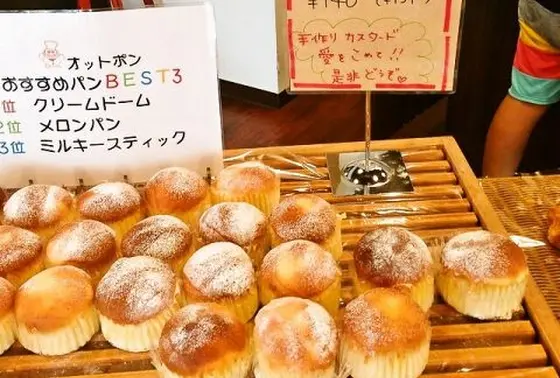 オットポン
おすすめパンBEST3
位 クリームドーム
2位 メロンパン
3位 ミルキースティック
¥140
手作りカスタード
愛をこめて!!
是非どうぞ♡